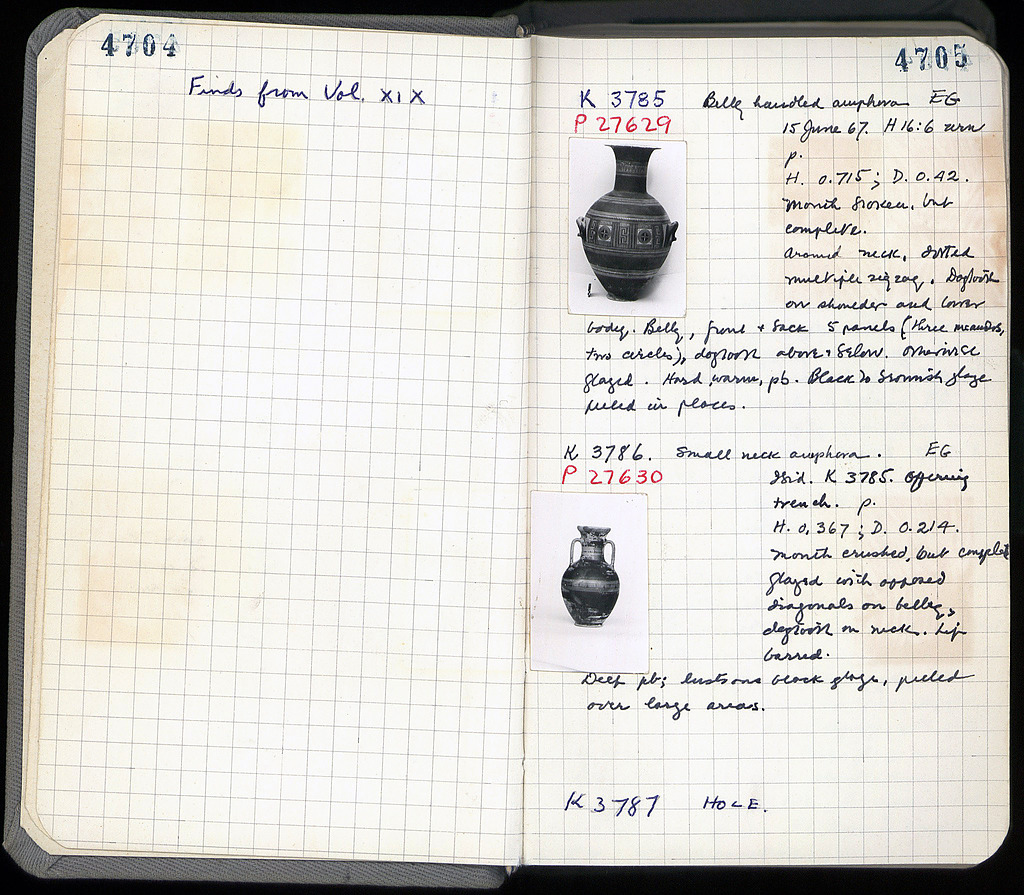 4704
Finds from Vol. XIX
4705
K 3785 Belly handled amphora EG
P 27629
15 June 67. H 16:6 urn
p.
H. 0.715; D. 0.42.
Mouth broken, but
complete.
Around neck, dotted
multiple zigzag. Dogtooth
on shoulder and lower
body. Belly, front + back 5 panels (three meanders,
two circles), dogtooth above + below. Otherwise
glazed. Hard, warm, pb. Black to brownish glaze
peeled in places.
K 3786. Small neck amphora. EG
P 27630
Ibid. K 3785. Offering
trench. p.
H. 0.367; D. 0.214.
Mouth crushed, but complete
glazed with opposed
diagonals on belly,
dogtooth on neck. Lip
barred.
Deep pb; lustrous black glaze, peeled
over large areas.
K 3787 HOLE.